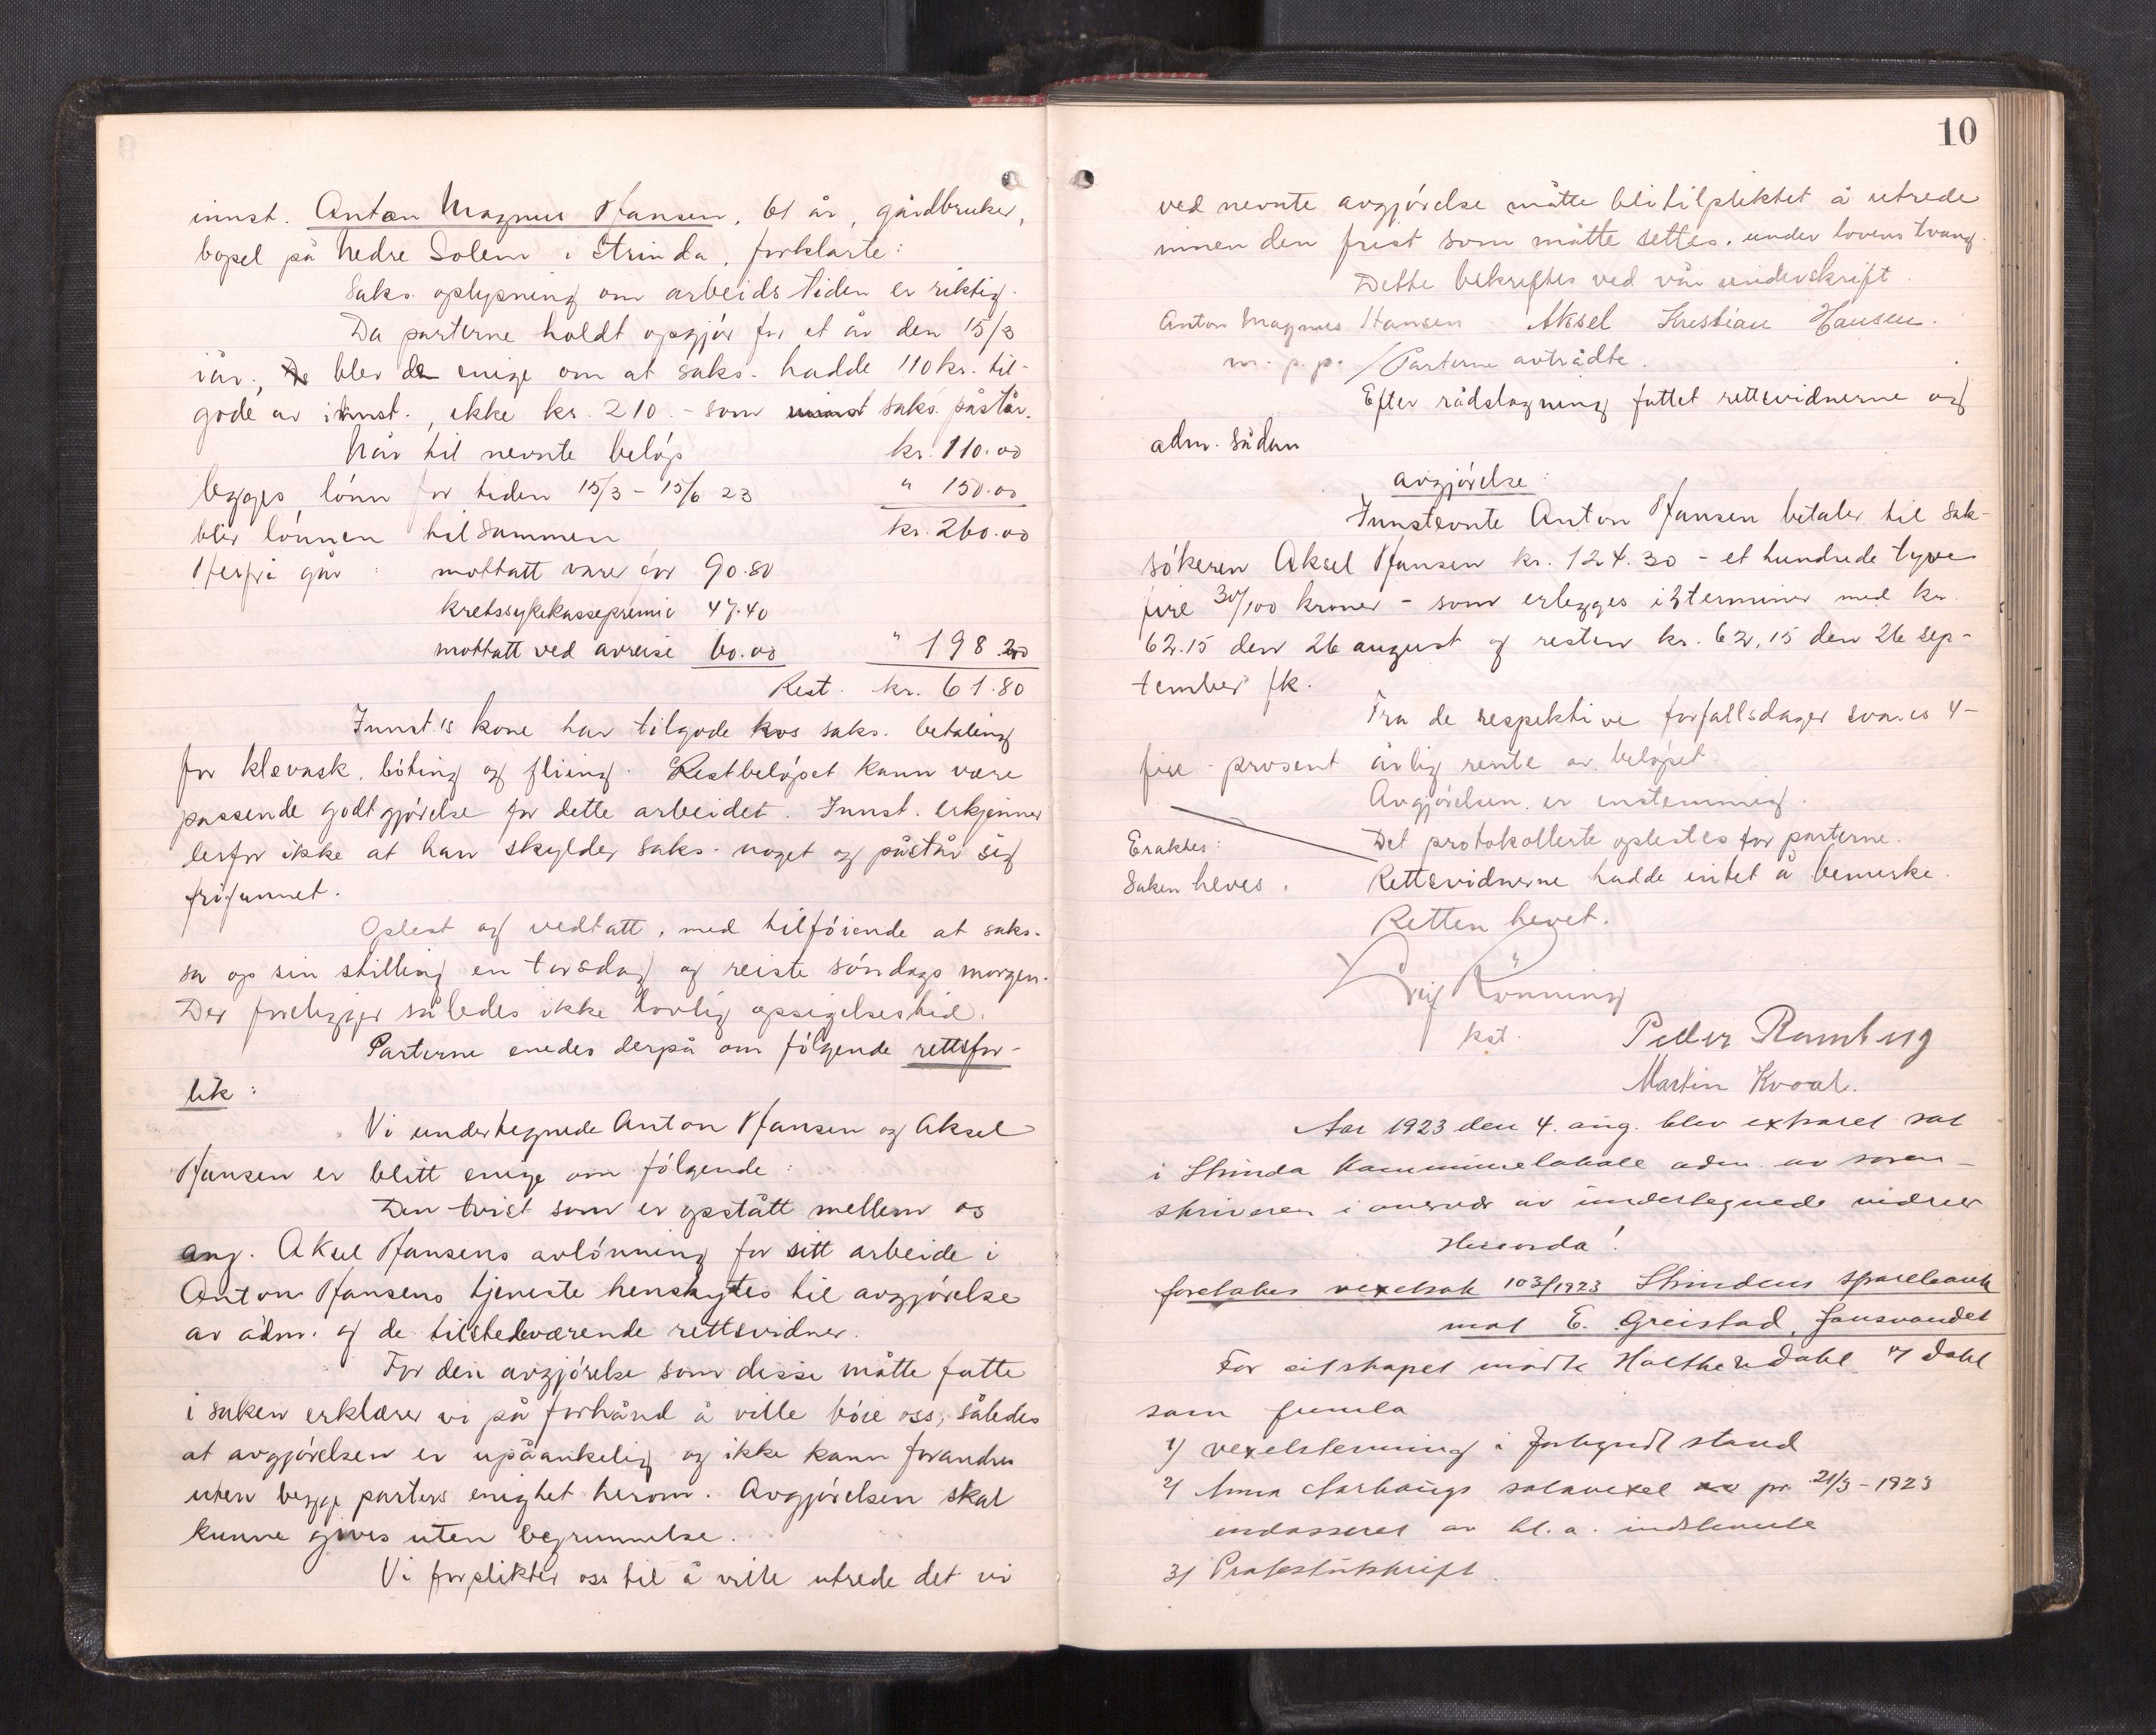 innst. Anton Magnus Hansen, 61 år, gårdbruker,
bopel på Nedre Solem i Strinda, forklarte:
Saks. oplysning om arbeidstiden er riktig.
Da parterne holdt opgjör for et år den 15/3
iår, blev de enige om at saks. hadde 110 kr. til-
gode av innst., ikke kr. 210.- som saks. påstår.
Når til nevnte belöp kr. 110.00
legges lönn for tiden 15/3 - 15/6 23 " 150.00
blir lönnen tilsammen kr. 260.00
Herfra går: mottatt varer for 90.80
kretssykekassepremie 47.40
mottatt ved avreise 60.00 " 198.20
Rest. kr. 61.80
Innst.'s kone har tilgode hos saks. betaling
for klevask, böting og fliing. Restbelöpet kann være
passende godtgjörelse for dette arbeidet. Innst. erkjenner
derfor ikke at han skylder saks. noget og påstår sig
frifunnet.
Oplest og vedtatt, med tilföiende at saks.
sa op sin stilling en torsdag og reiste söndags morgen.
Der foreligger således ikke lovlig opsigelsestid.
Parterne enedes derpå om fölgende rettsfor-
lik:
Vi undertegnede Anton Hansen og Aksel
Hansen er blitt enige om fölgende:
Den tvist som er opstått mellem os
ang. Aksel Hansens avlönning for sitt arbeide i
Anton Hansens tjeneste henskytes til avgjörelse
av adm. og de tilstedeværende rettsvidner.
For den avgjörelse som disse måtte fatte
i saken erklærer vi på forhånd å ville böie oss, således
at avgjörelsen er upåankelig og ikke kann forandres
uten begge parters enighet herom. Avgjörelsen skal
kunne gives uten begrunnelse.
Vi forplikter oss til å ville utrede det vi
10
ved nevnte avgjörelse måtte bli tilpliktet å utrede
innen den frist som måtte settes, under lovens tvang.
Dette bekreftes ved vår underskrift.
Anton Magnus Hansen Aksel Kristian Hansen.
m. p. p. / Parterne avtrådte.
Efter rådslagning fattet rettsvidnerne og
adm. sådan
avgjörelse:
Innstevnte Anton Hansen betaler til sak-
sökeren Aksel Hansen kr. 124.30 - et hundrede tyve
fire 30/100 kroner - som erlegges i 2 terminer med kr.
62.15 den 26 august og resten kr. 62.15 den 26 sep-
tember fk.
Fra de respektive forfallsdager svares 4-
fire - prosent årlig rente av belöpet.
Avgjörelsen er enstemmig.
Det protokollerte oplestes for parterne.
Eraktes:
Saken heves. Rettsvidnerne hadde intet å bemerke.
Retten hevet.
Leif Rönning
kst. Peder Ramberg
Martin Kvaal.
Aar 1923 den 4. aug. blev extraret sat
i Strinda kommunelokale adm. av soren-
skriveren i nærvær av undertegnede vidner
Hvorda!
foretages vexelsak 103/1923 Strindens sparebank
mot E. Greistad, Jonsvandet
For citskapet mødte Holtherdahl v/ Dahl
som fremla
1) vexelstevning i forkyndt stand
2) Anna Aarhaugs solavexel pr. 21/3 - 1923
endosseret av bl. a. indstevnte
3) Protestutskrift.